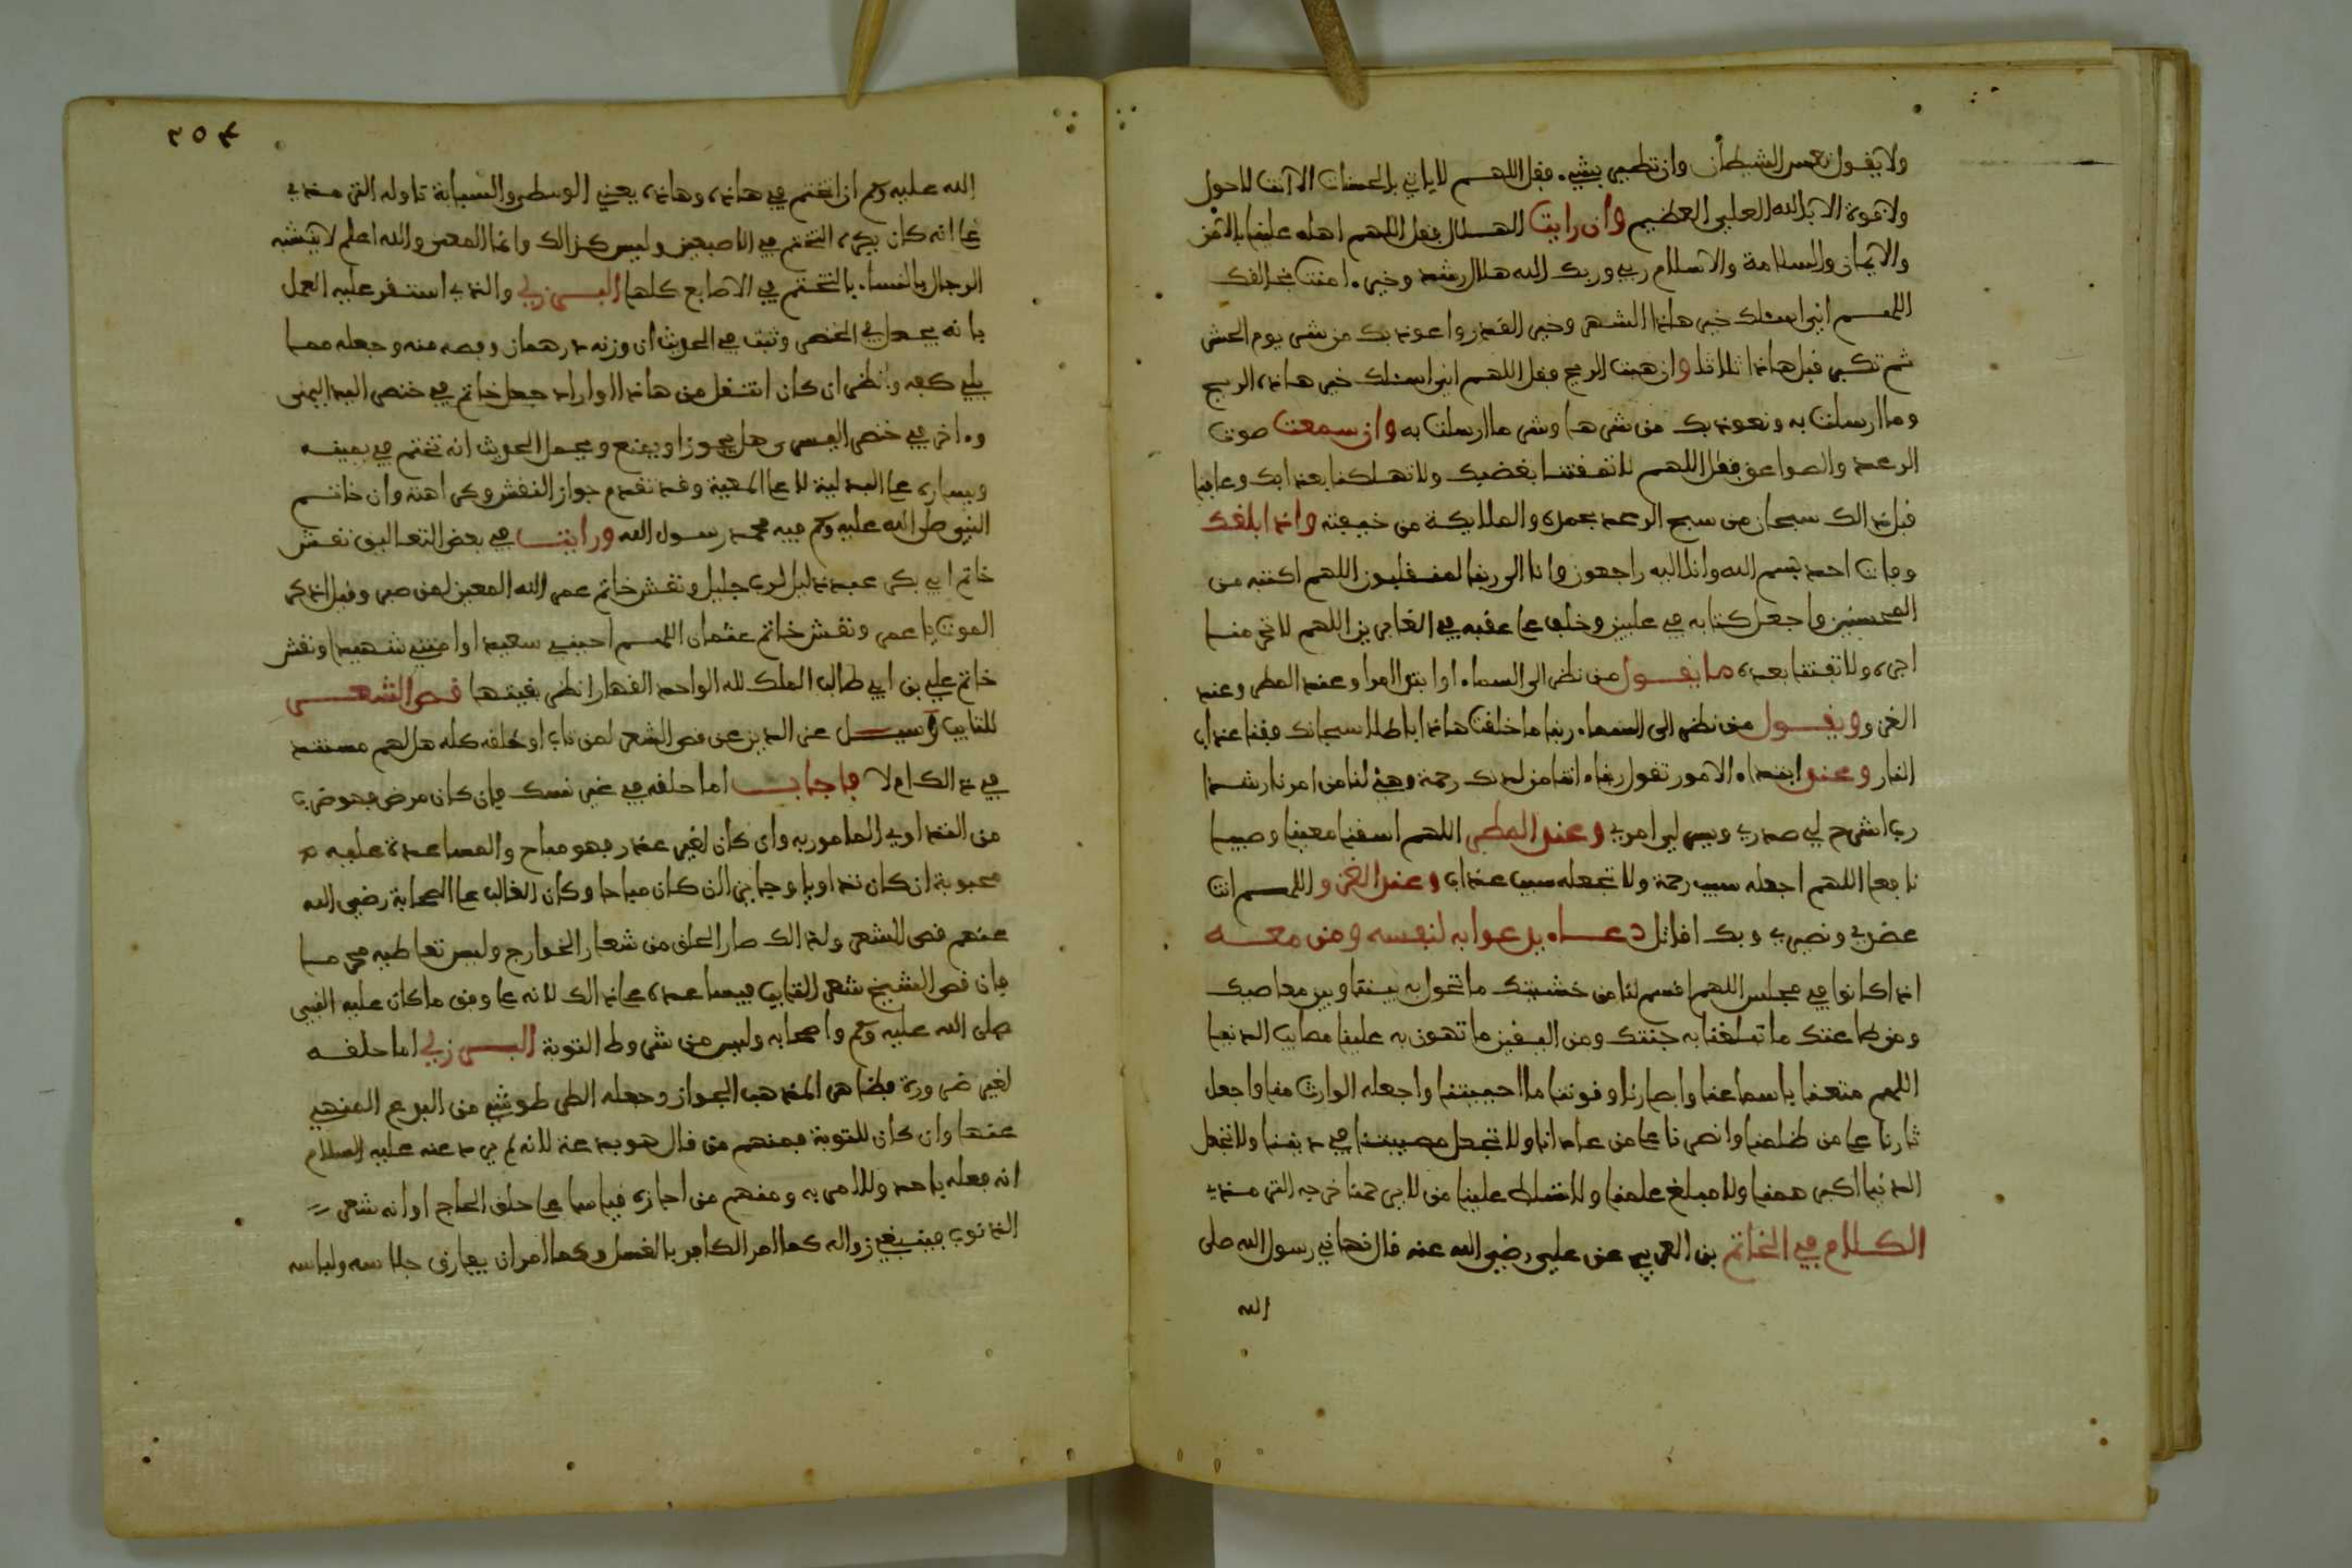 ولا يقول تعس الشيطان وان تطير بشيء فقل اللهم لا ياتي بالحسنات الا انت لا حول
ولا قوة الا بالله العلي العظيم وان رايت الهلال فقل اللهم اهله علينا بالامن
والايمان والسلامة والاسلام ربي وربك الله هلال رشد وخير امنت بخالقك
اللهم اني اسئلك خير هاذا الشهر وخير القدر واعوذ بك من شر يوم الحشر
ثم تكبر قبل هاذا ثلاثا وان هبت الريح فقل اللهم اني اسئلك خير هاذه الريح
وما ارسلت به ونعوذ بك من شرها وشر ما ارسلت به وان سمعت صوت
الرعد والصواعق فقل اللهم لا تقتلنا بغضبك ولا تهلكنا بعذابك وعافنا
قبل ذالك سبحان من سبح الرعد بحمده والملايكة من خيفته واذا بلغك
وفات احد بسم الله وانا اليه راجعون وانا الى ربنا لمنقلبون اللهم اكتبه من
المحسنين واجعل كتابه في عليين وخلف على عقبه في الغابرين اللهم لا تحرمنا
اجره ولا تفتنا بعده ما يقول من نظر الى السماء او ابتدا امرا وعند المطر وعند
الغزو ويقول من نظر الى السماء ربنا ما خلقت هاذا باطلا سبحانك فقنا عذاب
النار وعند ابتداء الامور تقول ربنا ءاتنا من لدنك رحمة وهيئ لنا من امرنا رشدا
رب اشرح لي صدري ويسر لي امري وعند المطر اللهم اسقنا مغيثا وصيبا
نافعا اللهم اجعله سبب رحمة ولا تجعله سبب عذاب وعند الغزو اللهم انت
عضدي ونصيري وبك اقاتل دعاء يدعوا به لنفسه ومن معه
اذا كانوا في مجلس اللهم اقسم لنا من خشيتك ما تحول به بيننا وبين معاصيك
ومن طاعتك ما تبلغنا به جنتك ومن اليقين ما تهون به علينا مصايب الدنيا
اللهم متعنا باسماعنا وابصارنا وقوتنا ما احييتنا واجعله الوارث منا واجعل
ثارنا على من ظلمنا وانصرنا على من عادانا ولا تجعل مصيبتنا في ديننا ولا تجعل
الدنيا اكبر همنا ولا مبلغ علمنا ولا تسلط علينا من لا يرحمنا خرجه الترمذي
الكلام في الخاتم بن العربي عن علي رضي الله عنه قال نهاني رسول الله صلى
الله
٢٥٤
الله عليه وسلم ان اتختم في هاذه وهاذه يعني الوسطى والسبابة تاوله الترمذي
على انه كان يكره التختم في الاصبعين وليس كذالك وانما المعنى والله اعلم لا يتشبه
الرجال بالنساء بالتختم في الاصابع كلها البرزلي والذي استقر عليه العمل
بانه يجعل في الخنصر وثبت في الحديث ان وزنه درهمان وفصه منه وجعله مما
يلي كفه وانظر ان كان انتقل من هاذا لو اراد جعل خاتم في خنصر اليد اليمنى
وءاخر في خنصر اليسرى هل يجوز او يمنع ومحمل الحديث انه تختم في يمينه
ويساره على البدلية لا على المعية وقد تقدم جواز النقش وكراهته وان خاتم
النبي صلى الله عليه وسلم فيه محمد رسول الله ورايت في بعض التعاليق نقش
خاتم ابي بكر عبد ذليل لرب جليل ونقش خاتم عمر الله المعين لمن صبر وقيل اذكر
الموت يا عمر ونقش خاتم عثمان اللهم احييني سعيدا وامتني شهيدا ونقش
خاتم علي بن ابي طالب الملك لله الواحد القهار انظر بقيتها قص الشعر
للتايب وسيل عز الدين عن قص الشعر لمن تاب او حلقه كله هل لهم مستند
في ذالك ام لا فاجاب اما حلقه في غير نسك فان كان مرض فهو ضرب
من التداوي المامور به وان كان لغير عذر فهو مباح والمساعدة عليه
محبوبة ان كان تداويا وجايز ان كان مباحا وكان الغالب على الصحابة رضي الله
عنهم قص الشعر ولذالك صار الحلق من شعار الخوارج وليس تعاطيه محرما
فان قص الشيخ شعر التايب فيساعده على ذالك لانه على وفق ما كان عليه النبي
صلى الله عليه وسلم واصحابه وليس من شروط التوبة البرزلي اما حلقه
لغير ضرورة فظاهر المذهب الجواز وجعله الطرطوشي من البدع المنهي
عنها وان كان للتوبة فمنهم من قال هو بدعة لانه لم يرد عنه عليه السلام
انه فعله باحد ولا امر به ومنهم من اجازه قياسا على حلق الحاج او انه شعر
الذنوب فينبغي زواله كما امر الكافر بالغسل وكما امر ان يفارق جلاسه ولباسه